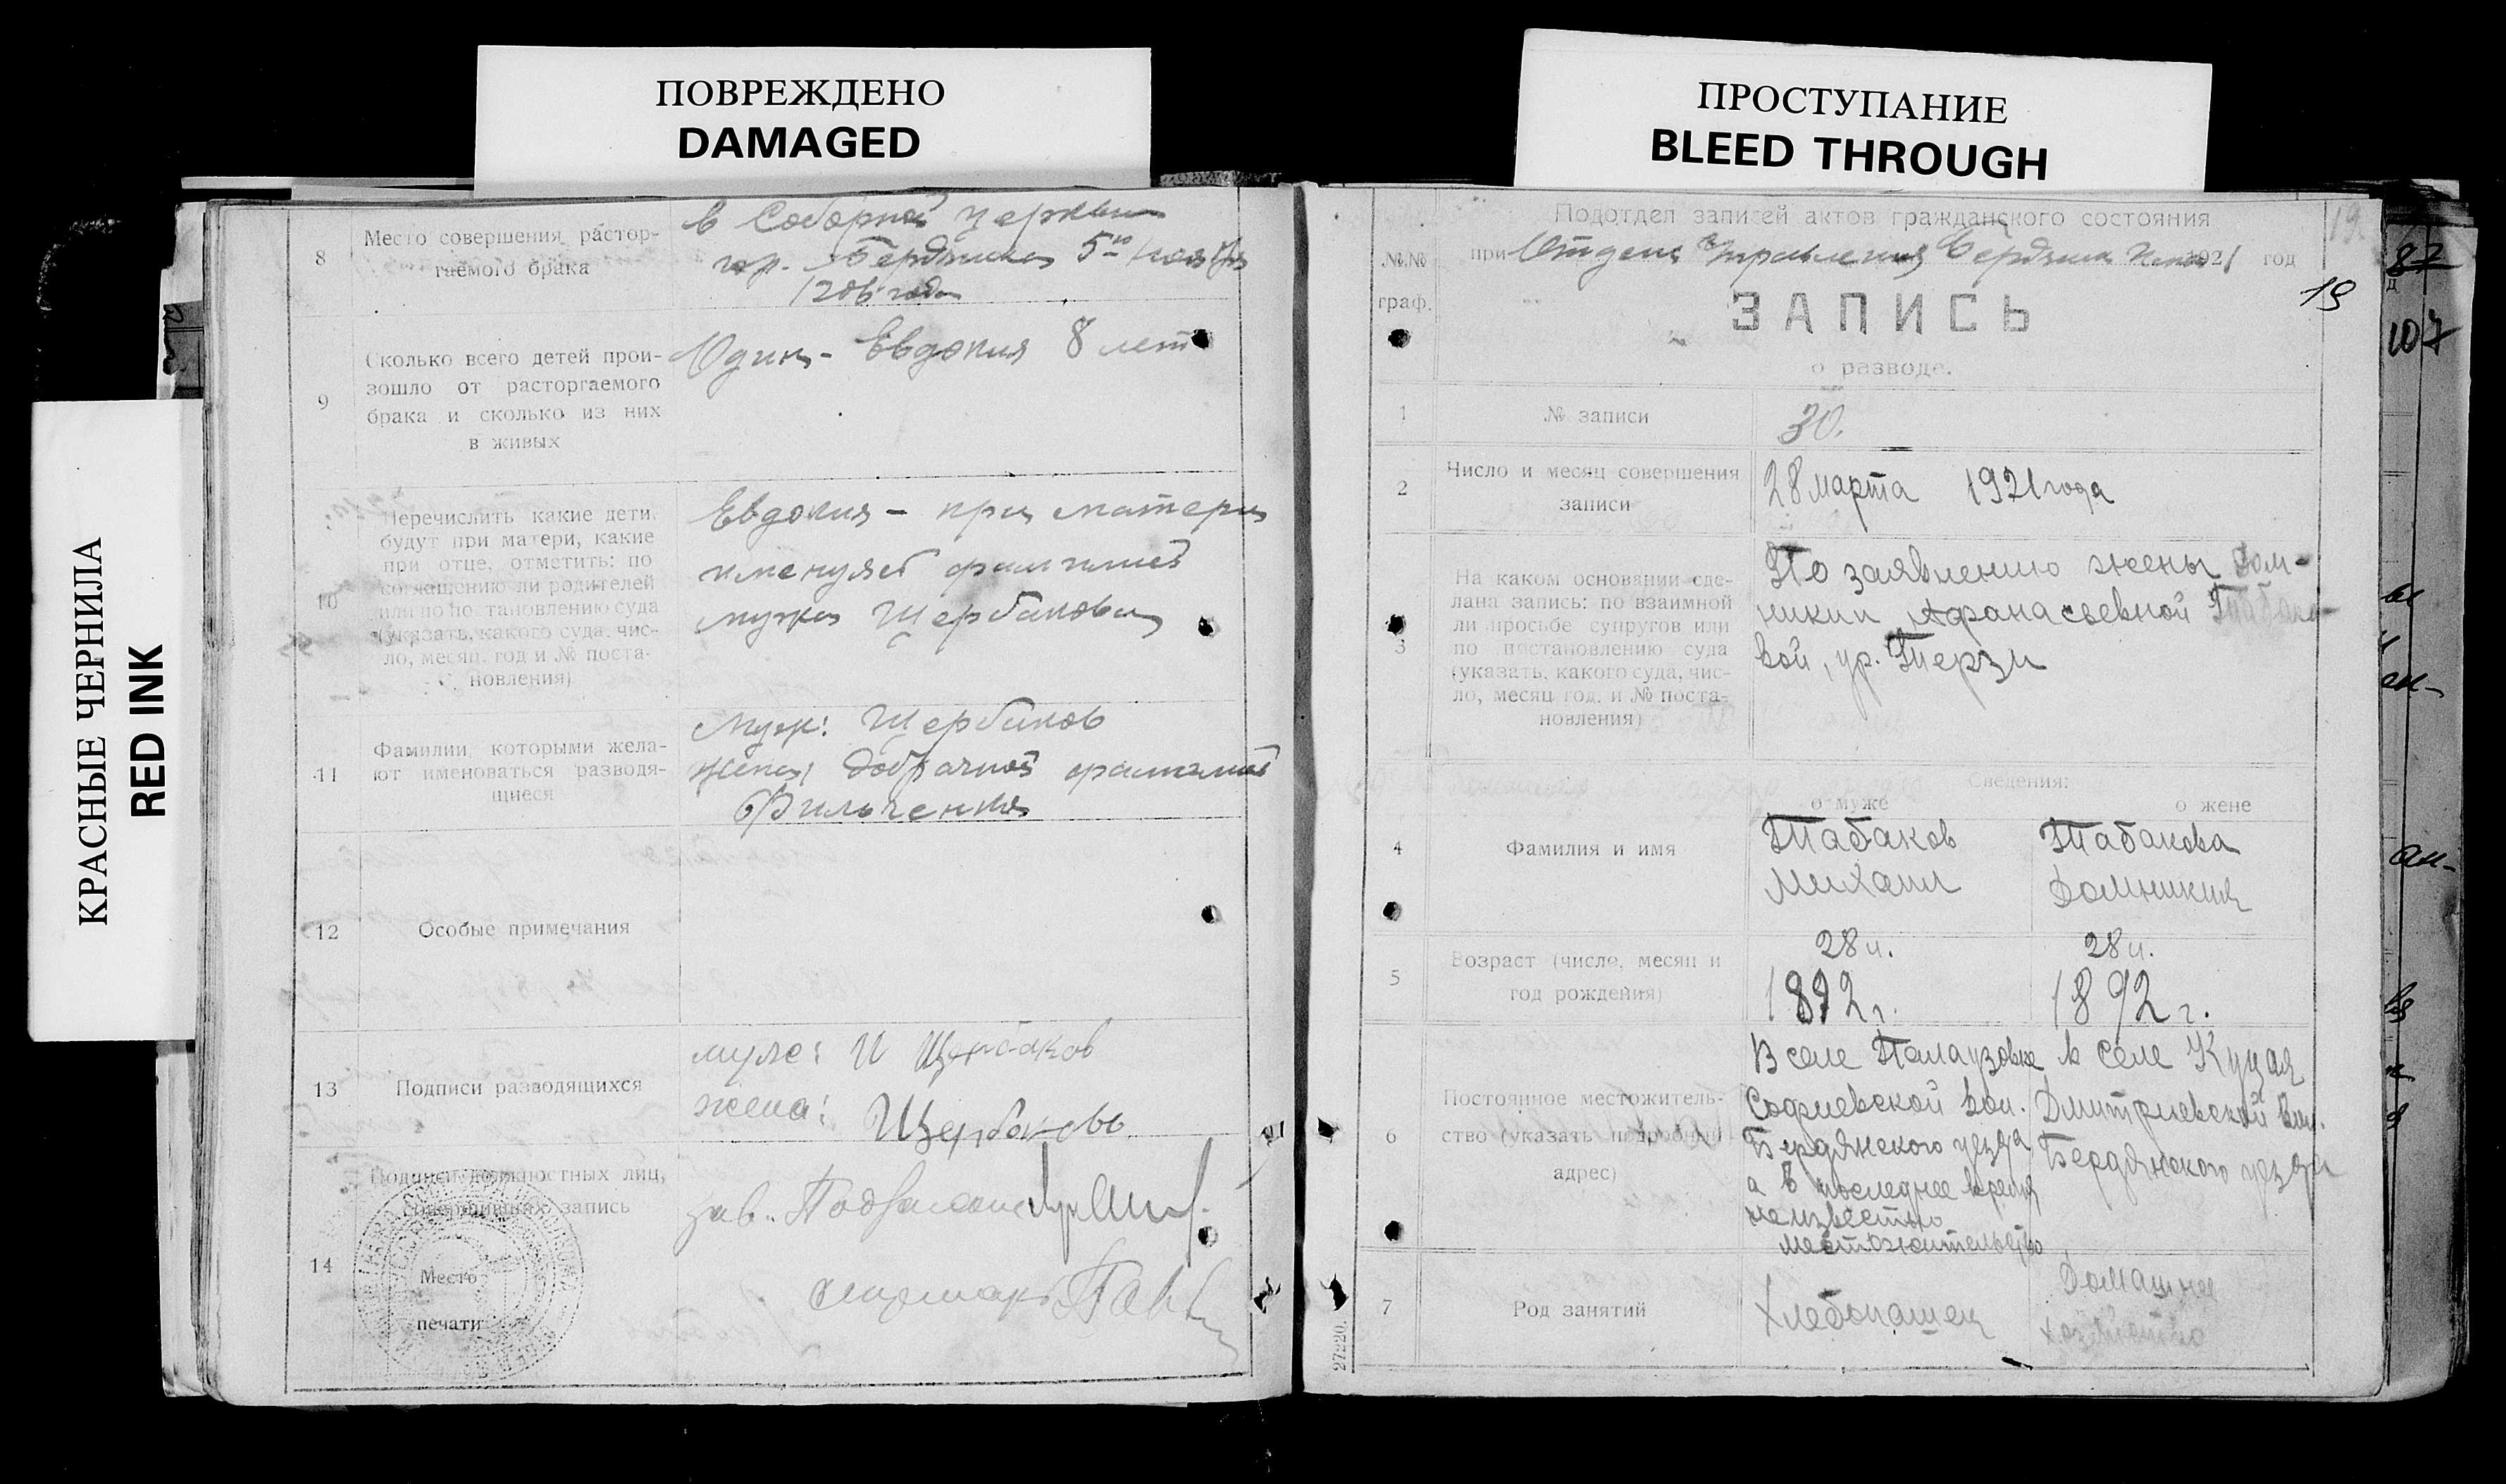 ПОВРЕЖДЕНО
DAMAGED
ПРОСТУПАНИЕ
BLEED THROUGH
КРАСНЫЕ ЧЕРНИЛА
RED INK
8
Место совершения растор-
гаемого брака
в Соборной церкви
гор. Бердянска 5го ноября
года
9
Сколько всего детей прои-
зошло от расторгаемого
брака и сколько из них
в живых
Один - Евдокия 8 лет
10
Перечислить какие дети
будут при матери, какие
при отце, отметить: по
соглашению ли родителей
или по постановлению суда
(указать, какого суда, чис-
ло, месяц, год и № поста-
новления)
Евдокия - при матери
именуясь фамилией
мужа Щербакова
11
Фамилии, которыми жела-
ют именоваться разводя-
щиеся
Муж: Щербаков
Жена: добрачной фамилией
Фильченко
12
Особые примечания
13
Подписи разводящихся
муж: И Щербаков
жена: Щербакова
14
Подписи должностных лиц,
совершивших запись
Место
печати
зав. Подзагсом
19
Подотдел записей актов гражданского состояния
№№
граф.
при Отделе Управления Бердянск 1921 год
19
ЗАПИСЬ
о разводе.
1
№ записи
30.
2
Число и месяц совершения
записи
28 марта 1921 года
3
На каком основании сде-
лана запись: по взаимной
ли просьбе супругов или
по постановлению суда
(указать, какого суда, чис-
ло, месяц год, и № поста-
новления)
По заявлению жены Дом-
никии Афанасьевной Табако-
вой, ур. Терзи
Сведения:
о муже
о жене
4
Фамилия и имя
Табаков
Михаил
Табакова
Домникия
5
Возраст (число, месяц и
год рождения)
28 л.
1892 г.
28 л.
1892 г.
6
Постоянное местожитель-
ство (указать подробный
адрес)
В селе Палаузовке
Софиевской вол.
Бердянского уезда
а в последнее время
неизвестно
местожительство
в селе Куцая
Дмитриевской вол.
Бердянского уезда
7
Род занятий
Хлебопашец
Домашнее
хозяйство
27220.
87
107